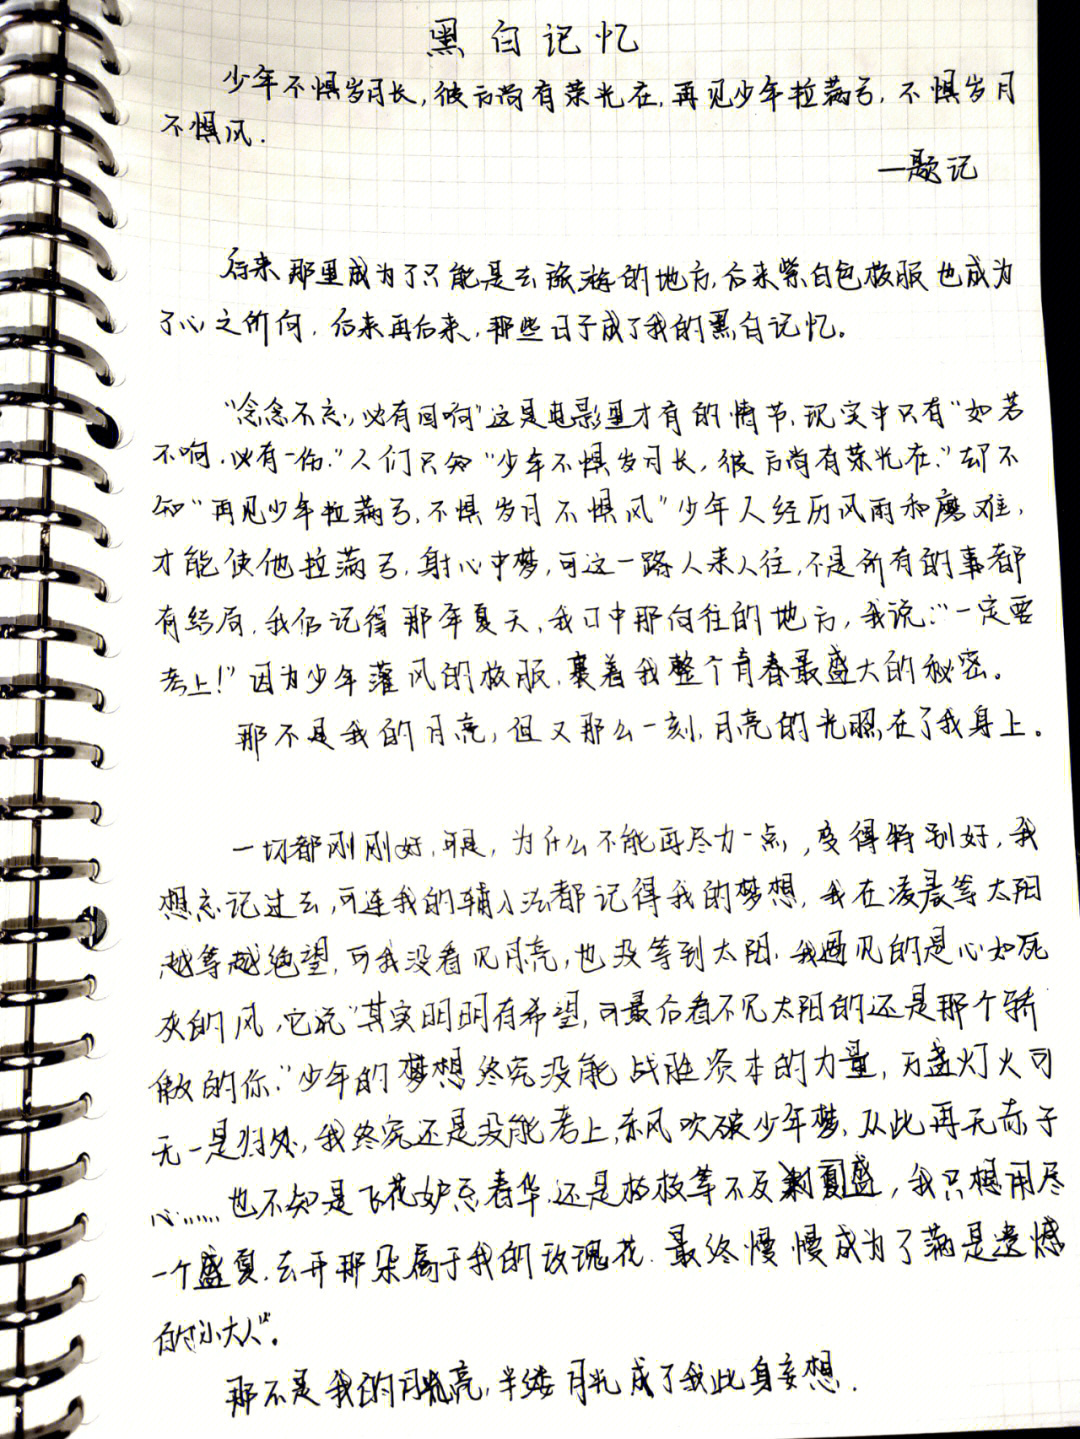 黑白记忆
少年不惧岁月长，彼方尚有荣光在，再见少年拉满弓，不惧岁月
不惧风.
—题记
后来那里成为了只能是去旅游的地方，后来紫白色校服也成为
了心之所向，后来再后来，那些日子成了我的黑白记忆。
“念念不忘，必有回响”这是电影里才有的情节，现实中只有“如若
不响，必有一伤.”人们只知“少年不惧岁月长，彼方尚有荣光在.”却不
知“再见少年拉满弓，不惧岁月不惧风”少年人经历风雨和磨难，
才能使他拉满弓，射心中梦，可这一路人来人往，不是所有的事都
有结局，我仍记得那年夏天，我口中那向往的地方，我说：“一定要
考上！”因为少年灌风的校服，裹着我整个青春最盛大的秘密。
那不是我的月亮，但又那么一刻，月亮的光照在了我身上。
一切都刚刚好，可是，为什么不能再尽力一点，变得特别好，我
想忘记过去，可连我的输入法都记得我的梦想，我在凌晨等太阳
越等越绝望，可我没看见月亮，也没等到太阳，我遇见的是心如死
灰的风，它说“其实明明有希望，可最后看不见太阳的还是那个骄
傲的你.”少年的梦想终究没能战胜资本的力量，万盏灯火可
无一是归处，我终究还是没能考上，东风吹破少年梦，从此再无赤子
心……也不知是飞花妒忌春华，还是枯枝等不及盛夏，我只想用尽
一个盛夏，去开那朵属于我的玫瑰花. 最终慢慢成为了满是遗憾
的“小大人”。
那不是我的月亮，半缕月光成了我此身妄想.